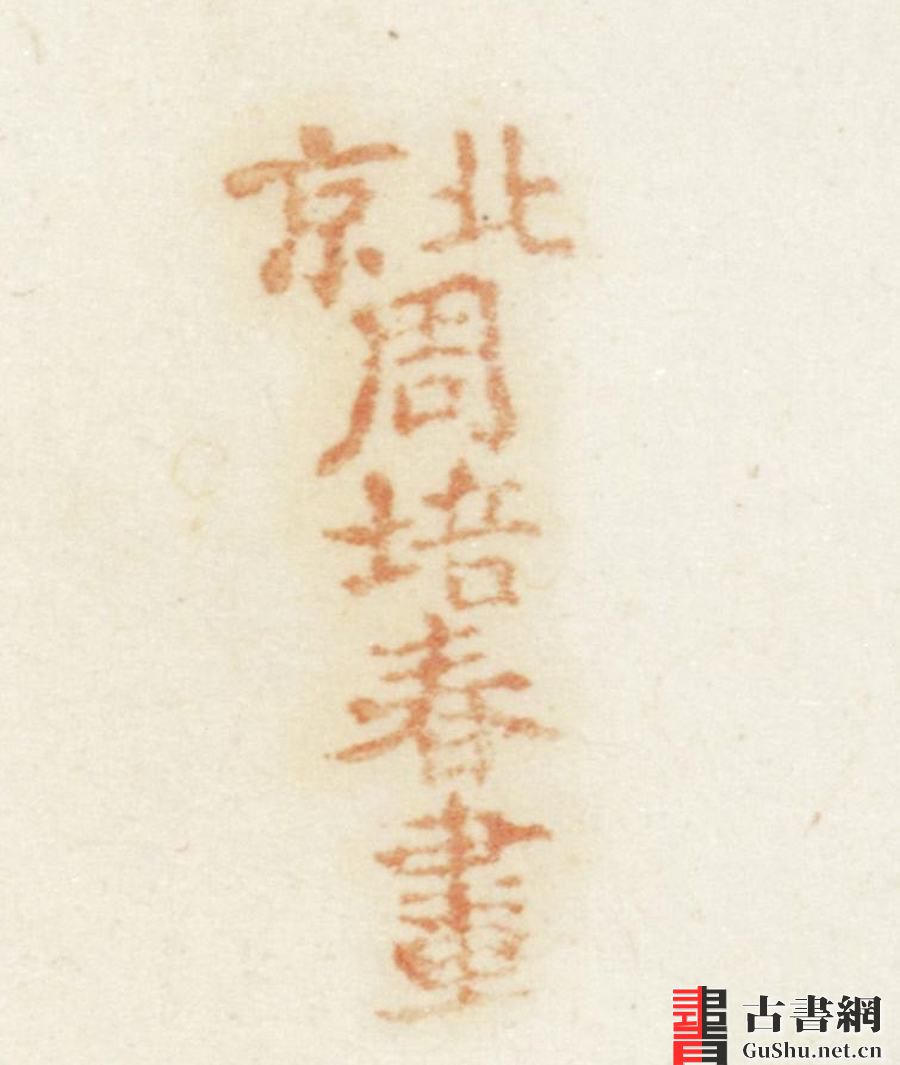 北京
周培春畫
古書網
GuShu.net.cn